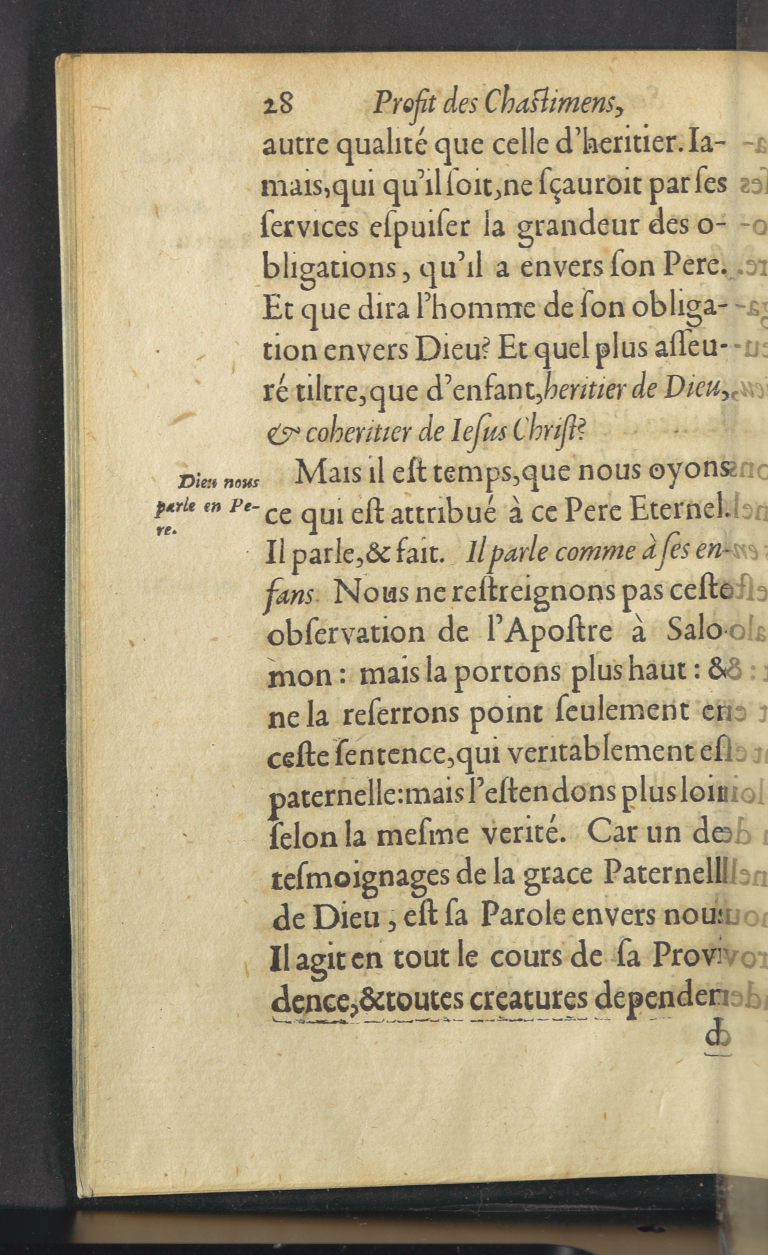 28 Profit des Chaſtimens,
autre qualité que celle d'heritier. Ia-
mais, qui qu'il ſoit, ne ſçauroit par ſes
ſervices eſpuiſer la grandeur des o-
bligations, qu'il a envers ſon Pere.
Et que dira l'homme de ſon obliga-
tion envers Dieu? Et quel plus aſſeu-
ré tiltre, que d'enfant, heritier de Dieu,
& coheritier de Ieſus Chriſt?
Dieu nous
parle en Pe-
re.
Mais il eſt temps, que nous oyons
ce qui eſt attribué à ce Pere Eternel.
Il parle, & fait. Il parle comme à ſes en-
fans. Nous ne reſtreignons pas ceſte
obſervation de l'Apoſtre à Salo-
mon: mais la portons plus haut: &
ne la reſerrons point ſeulement en
ceſte ſentence, qui veritablement eſt
paternelle: mais l'eſtendons plus loin
ſelon la meſme verité. Car un des
teſmoignages de la grace Paternelle
de Dieu, eſt ſa Parole envers nous
Il agit en tout le cours de ſa Provi
dence, & toutes creatures dependen